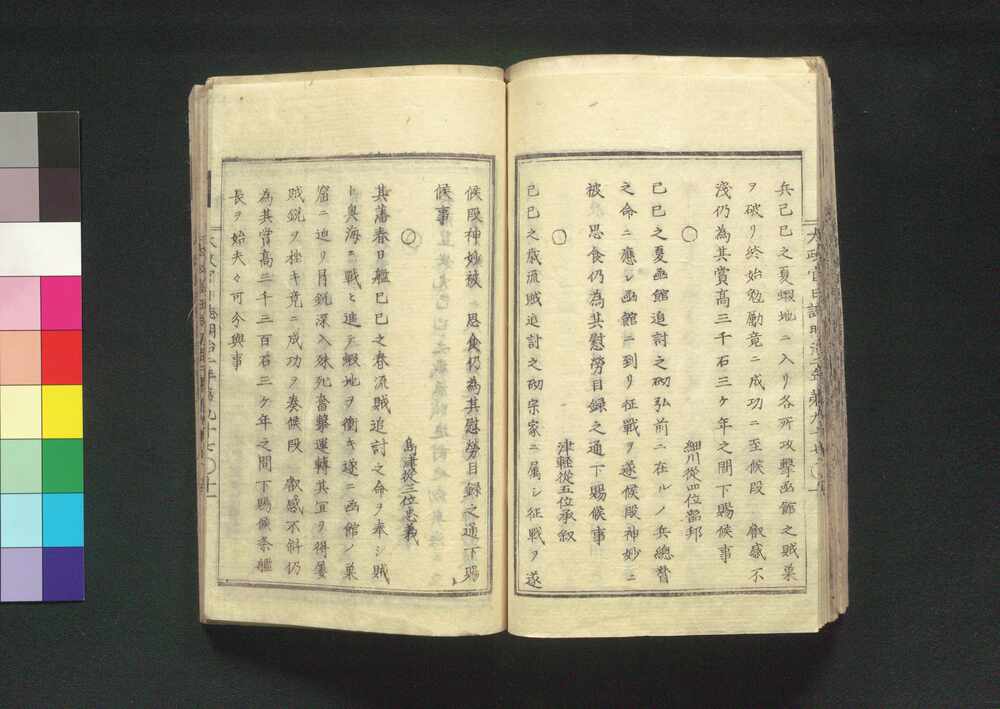 兵己巳之夏蝦地ニ入リ各所攻擊函館之賊巢
ヲ破リ終始勉勵竟ニ成功ニ至候段　叡感不
淺仍為其賞高三千石三ケ年之間下賜候事
細川從四位韶邦
己巳之夏函館追討之砌弘前ニ在ルノ兵總督
之命ニ應シ函館ニ到リ征戰ヲ遂候段神妙ニ
被　思食仍為其慰勞目録之通下賜候事
○
津軽從五位承叙
己巳之歲流賊追討之砌宗家ニ属シ征戰ヲ遂
候段神妙被　思食仍為其慰勞目録之通下賜
候事
○
島津從三位忠義
其藩春日艦己巳之春流賊追討之命ヲ奉シ賊
ト奥海ニ戰ヒ進テ蝦地ヲ衝キ遂ニ函館ノ巢
窟ニ迫リ冐銃深入殊死奮擊運轉其宜ヲ得屡
賊銳ヲ挫キ竟ニ成功ヲ奏候段　叡感不斜仍
為其賞高三千三百石三ケ年之間下賜候条艦
長ヲ始夫々可令與事